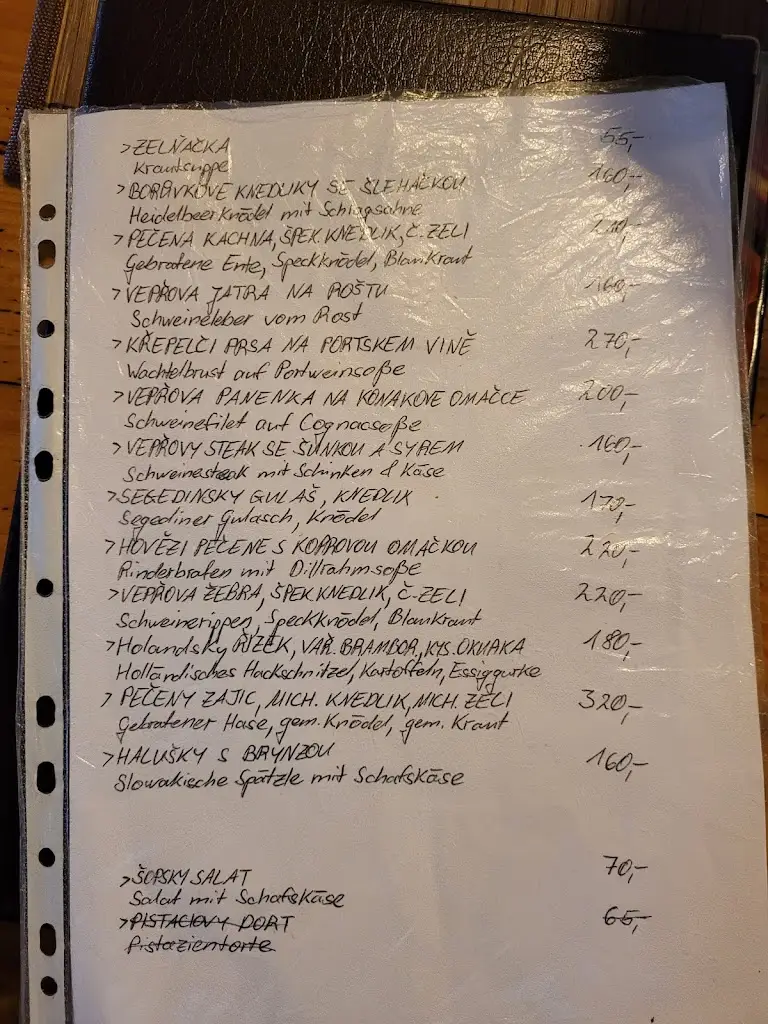 >ZELŇAČKA 55,-
Krautsuppe
>BORŮVKOVÉ KNEDLIKY SE ŠLEHAČKOU 160,-
Heidelbeerknödel mit Schlagsahne
>PEČENA KACHNA, ŠPEK. KNEDLIK, Č. ZELI
Gebratene Ente, Speckknödel, Blaukraut
>VEPŘOVA JATRA NA ROŠTU 160,-
Schweineleber vom Rost
>KŘEPELČI PRSA NA PORTSKEM VINĚ 270,-
Wachtelbrust auf Portweinsoße
>VEPŘOVA PANENKA NA KONAKOVE OMAČCE 200,-
Schweinefilet auf Cognacsoße
>VEPŘOVY STEAK SE ŠUNKOU A SYREM 160,-
Schweinesteak mit Schinken & Käse
>SEGEDINSKY GULAŠ, KNEDLIK 170,-
Segediner Gulasch, Knödel
>HOVĚZI PEČENE S KOPROVOU OMAČKOU 220,-
Rinderbraten mit Dillrahmsoße
>VEPŘOVA ŽEBRA, ŠPEK. KNEDLIK, Č. ZELI 220,-
Schweinerippen, Speckknödel, Blaukraut
>Holandsky ŘIZEK, VAŘ. BRAMBOR, KYS. OKURKA 180,-
Holländisches Hackschnitzel, Kartoffeln, Essiggurke
>PEČENY ZAJIC, MICH. KNEDLIK, MICH. ZELI 320,-
Gebratener Hase, gem. Knödel, gem. Kraut
>HALUŠKY S BRYNZOU 160,-
Slowakische Spätzle mit Schafskäse
>ŠOPSKY SALAT 70,-
Salat mit Schafskäse
>PISTACIOVY DORT 65,-
Pistazientorte